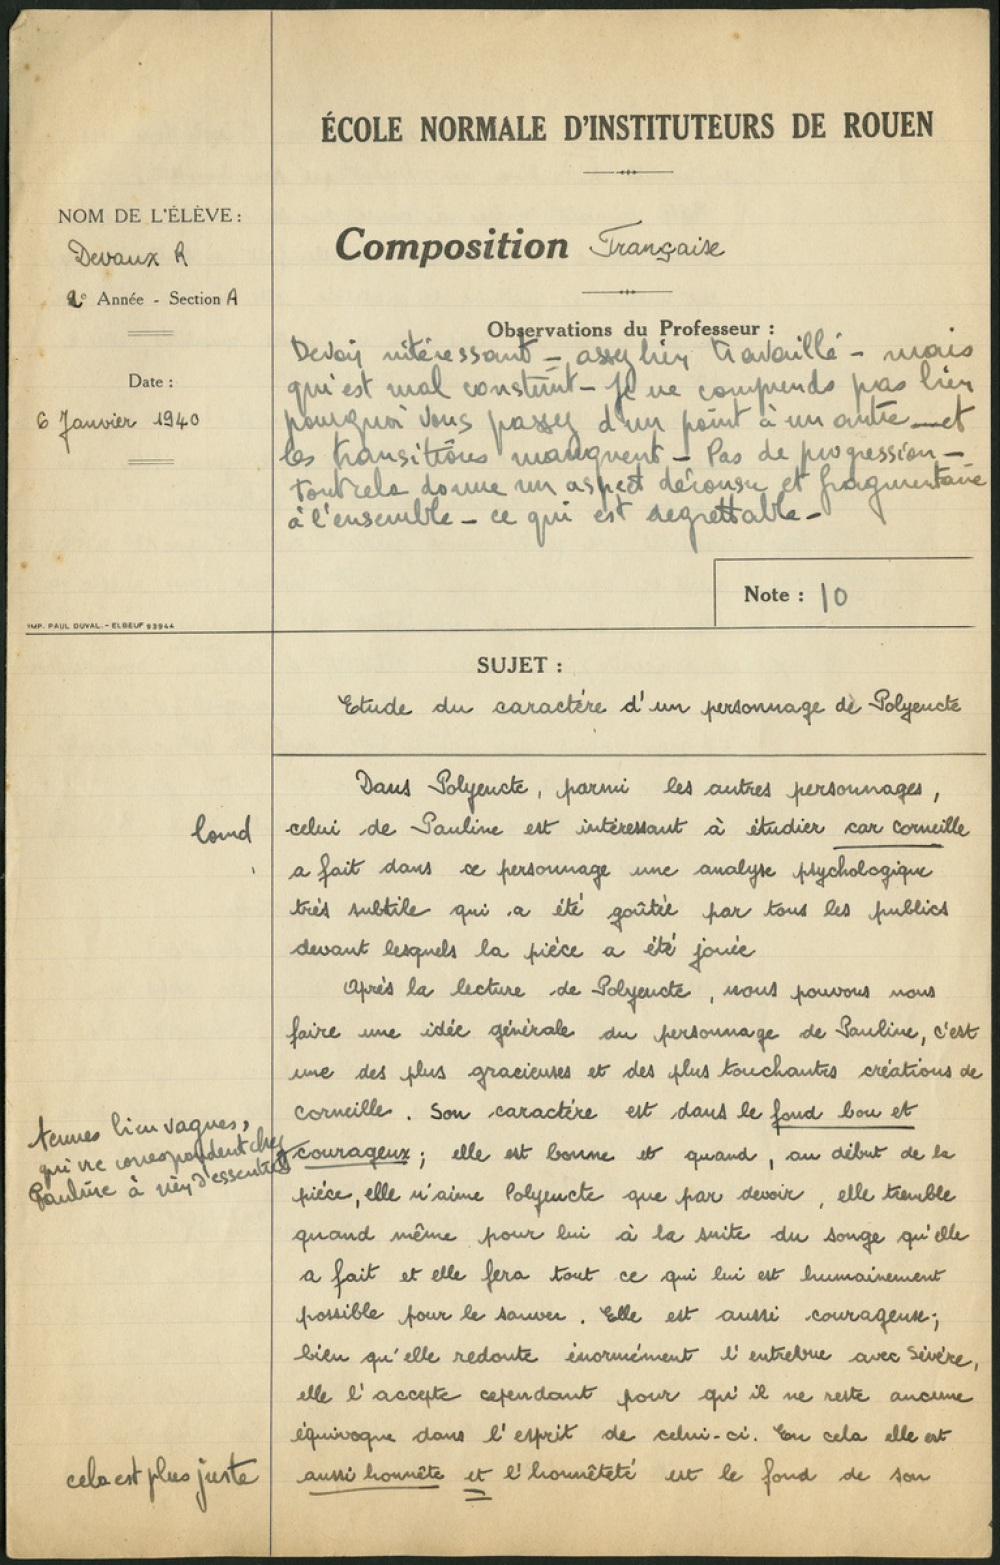 ÉCOLE NORMALE D'INSTITUTEURS DE ROUEN
NOM DE L'ÉLÈVE :
Devaux R
2e Année - Section A
Date :
6 Janvier 1940
Composition Française
Observations du Professeur :
Devoir intéressant - assez bien travaillé - mais
qui est mal construit - Je ne comprends pas bien
pourquoi vous passez d'un point à un autre - et
les transitions manquent - Pas de progression -
tout cela donne un aspect décousu et fragmentaire
à l'ensemble - ce qui est regrettable -
Note : 10
IMP. PAUL DUVAL. - ELBEUF 93944
SUJET :
Etude du caractére d'un personnage de Polyeucte
Dans Polyeucte, parmi les autres personnages,
lourd
celui de Pauline est intéressant à étudier car Corneille
a fait dans ce personnage une analyse psychologique
trés subtile qui a été goûtée par tous les publics
devant lesquels la piéce a été jouée
Aprés la lecture de Polyeucte, nous pouvons nous
faire une idée générale du personnage de Pauline, c'est
une des plus gracieuses et des plus touchantes créations de
Corneille. Son caractére est dans le fond bon et
termes bien vagues,
qui ne correspondent chez
Pauline à rien d'essentiel
courageux ; elle est bonne et quand, au début de la
piéce, elle n'aime Polyeucte que par devoir, elle tremble
quand même pour lui à la suite du songe qu'elle
a fait et elle fera tout ce qui lui est humainement
possible pour le sauver. Elle est aussi courageuse ;
bien qu'elle redoute énormément l'entrevue avec Sévére,
elle l'accepte cependant pour qu'il ne reste aucune
équivoque dans l'esprit de celui-ci. En cela elle est
cela est plus juste
aussi honnête et l'honnêteté est le fond de son